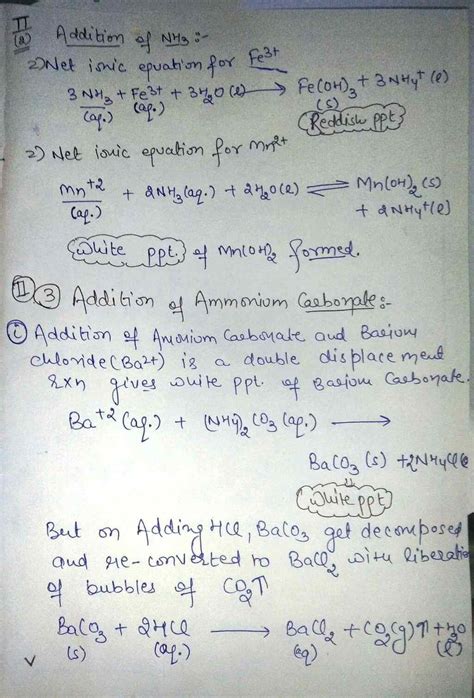 II
(a) Addition of NH3 :-
2) Net ionic equation for Fe3+
3NH3 + Fe3+ + 3H2O(l) ⟶ Fe(OH)3 + 3NH4+ (l)
(aq.) (aq.) (s)
Reddish ppt
2) Net ionic equation for Mn2+
Mn+2 + 2NH3(aq.) + 2H2O(l) ⇌ Mn(OH)2(s)
(aq.) + 2NH4+(l)
White ppt. of Mn(OH)2 formed.
II 3 Addition of Ammonium Carbonate:-
i) Addition of Amonium Carbonate and Barium
chloride (Ba2+) is a double displacement
rxn gives white ppt. of Barium Carbonate.
Ba+2(aq.) + (NH4)2CO3(aq.) ⟶
BaCO3(s) + 2NH4Cl
White ppt
But on Adding HCl, BaCO3 get decomposed
and re-converted to BaCl2 with liberation
of bubbles of CO2↑
BaCO3 + 2HCl ⟶ BaCl2 + CO2(g)↑ + H2O
(s) (aq.) (aq) (l)